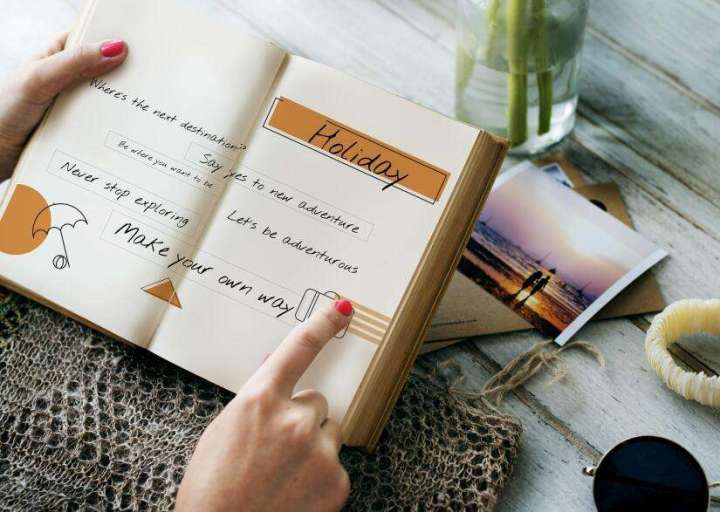 Holiday
Where's the next destination?
Be where you want to be
Say yes to new adventure
Never stop exploring
Let's be adventurous
Make your own way